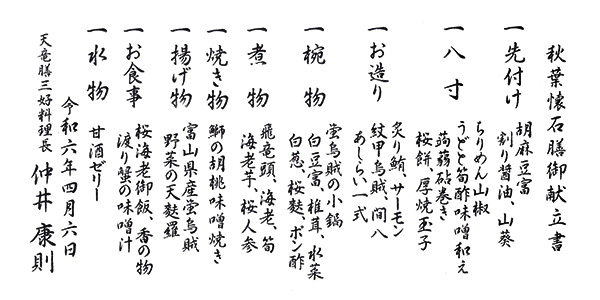 秋葉懐石膳御献立書
一 先付け
胡麻豆富
割り醤油、山葵
一 八寸
ちりめん山椒
うどと筍酢味噌和え
蒟蒻砧巻き
桜餅、厚焼玉子
一 お造り
炙り鮪、サーモン
紋甲烏賊、間八
あしらい一式
一 椀物
蛍烏賊の小鍋
白豆富、椎茸、水菜
白葱、桜麩、ポン酢
一 煮物
飛竜頭、海老、筍
海老芋、桜人参
一 焼き物
鰤の胡桃味噌焼き
一 揚げ物
富山県産蛍烏賊
野菜の天麩羅
一 お食事
桜海老御飯、香の物
渡り蟹の味噌汁
一 水物
甘酒ゼリー
令和六年四月六日
天竜膳三好料理長 仲井康則